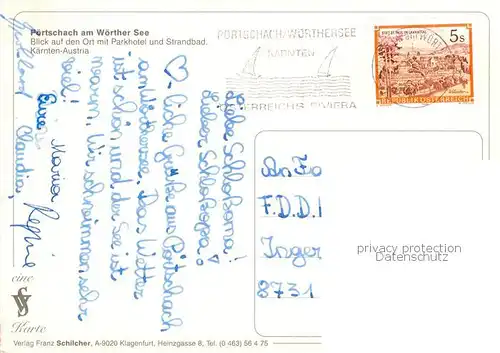 Pörtschach am Wörther See
Blick auf den Ort mit Parkhotel und Strandbad.
Kärnten-Austria
PÖRTSCHACH/WÖRTHERSEE
KÄRNTEN
ÖSTERREICHS RIVIERA
5s
REPUBLIK ÖSTERREICH
Liebe Schloßoma!
Lieber Schloßopa!
♡-liche Grüße aus Pörtschach
am Wörthersee. Das Wetter
ist schön und der See ist
warm. Wir schwimmen sehr
viel!
Eure Maria
Claudia,
An Fa
F.D.D.I
Inger
8731
privacy protection
Datenschutz
eine
VS
Karte
Verlag Franz Schilcher, A-9020 Klagenfurt, Heinzgasse 8, Tel. (0 463) 56 4 75